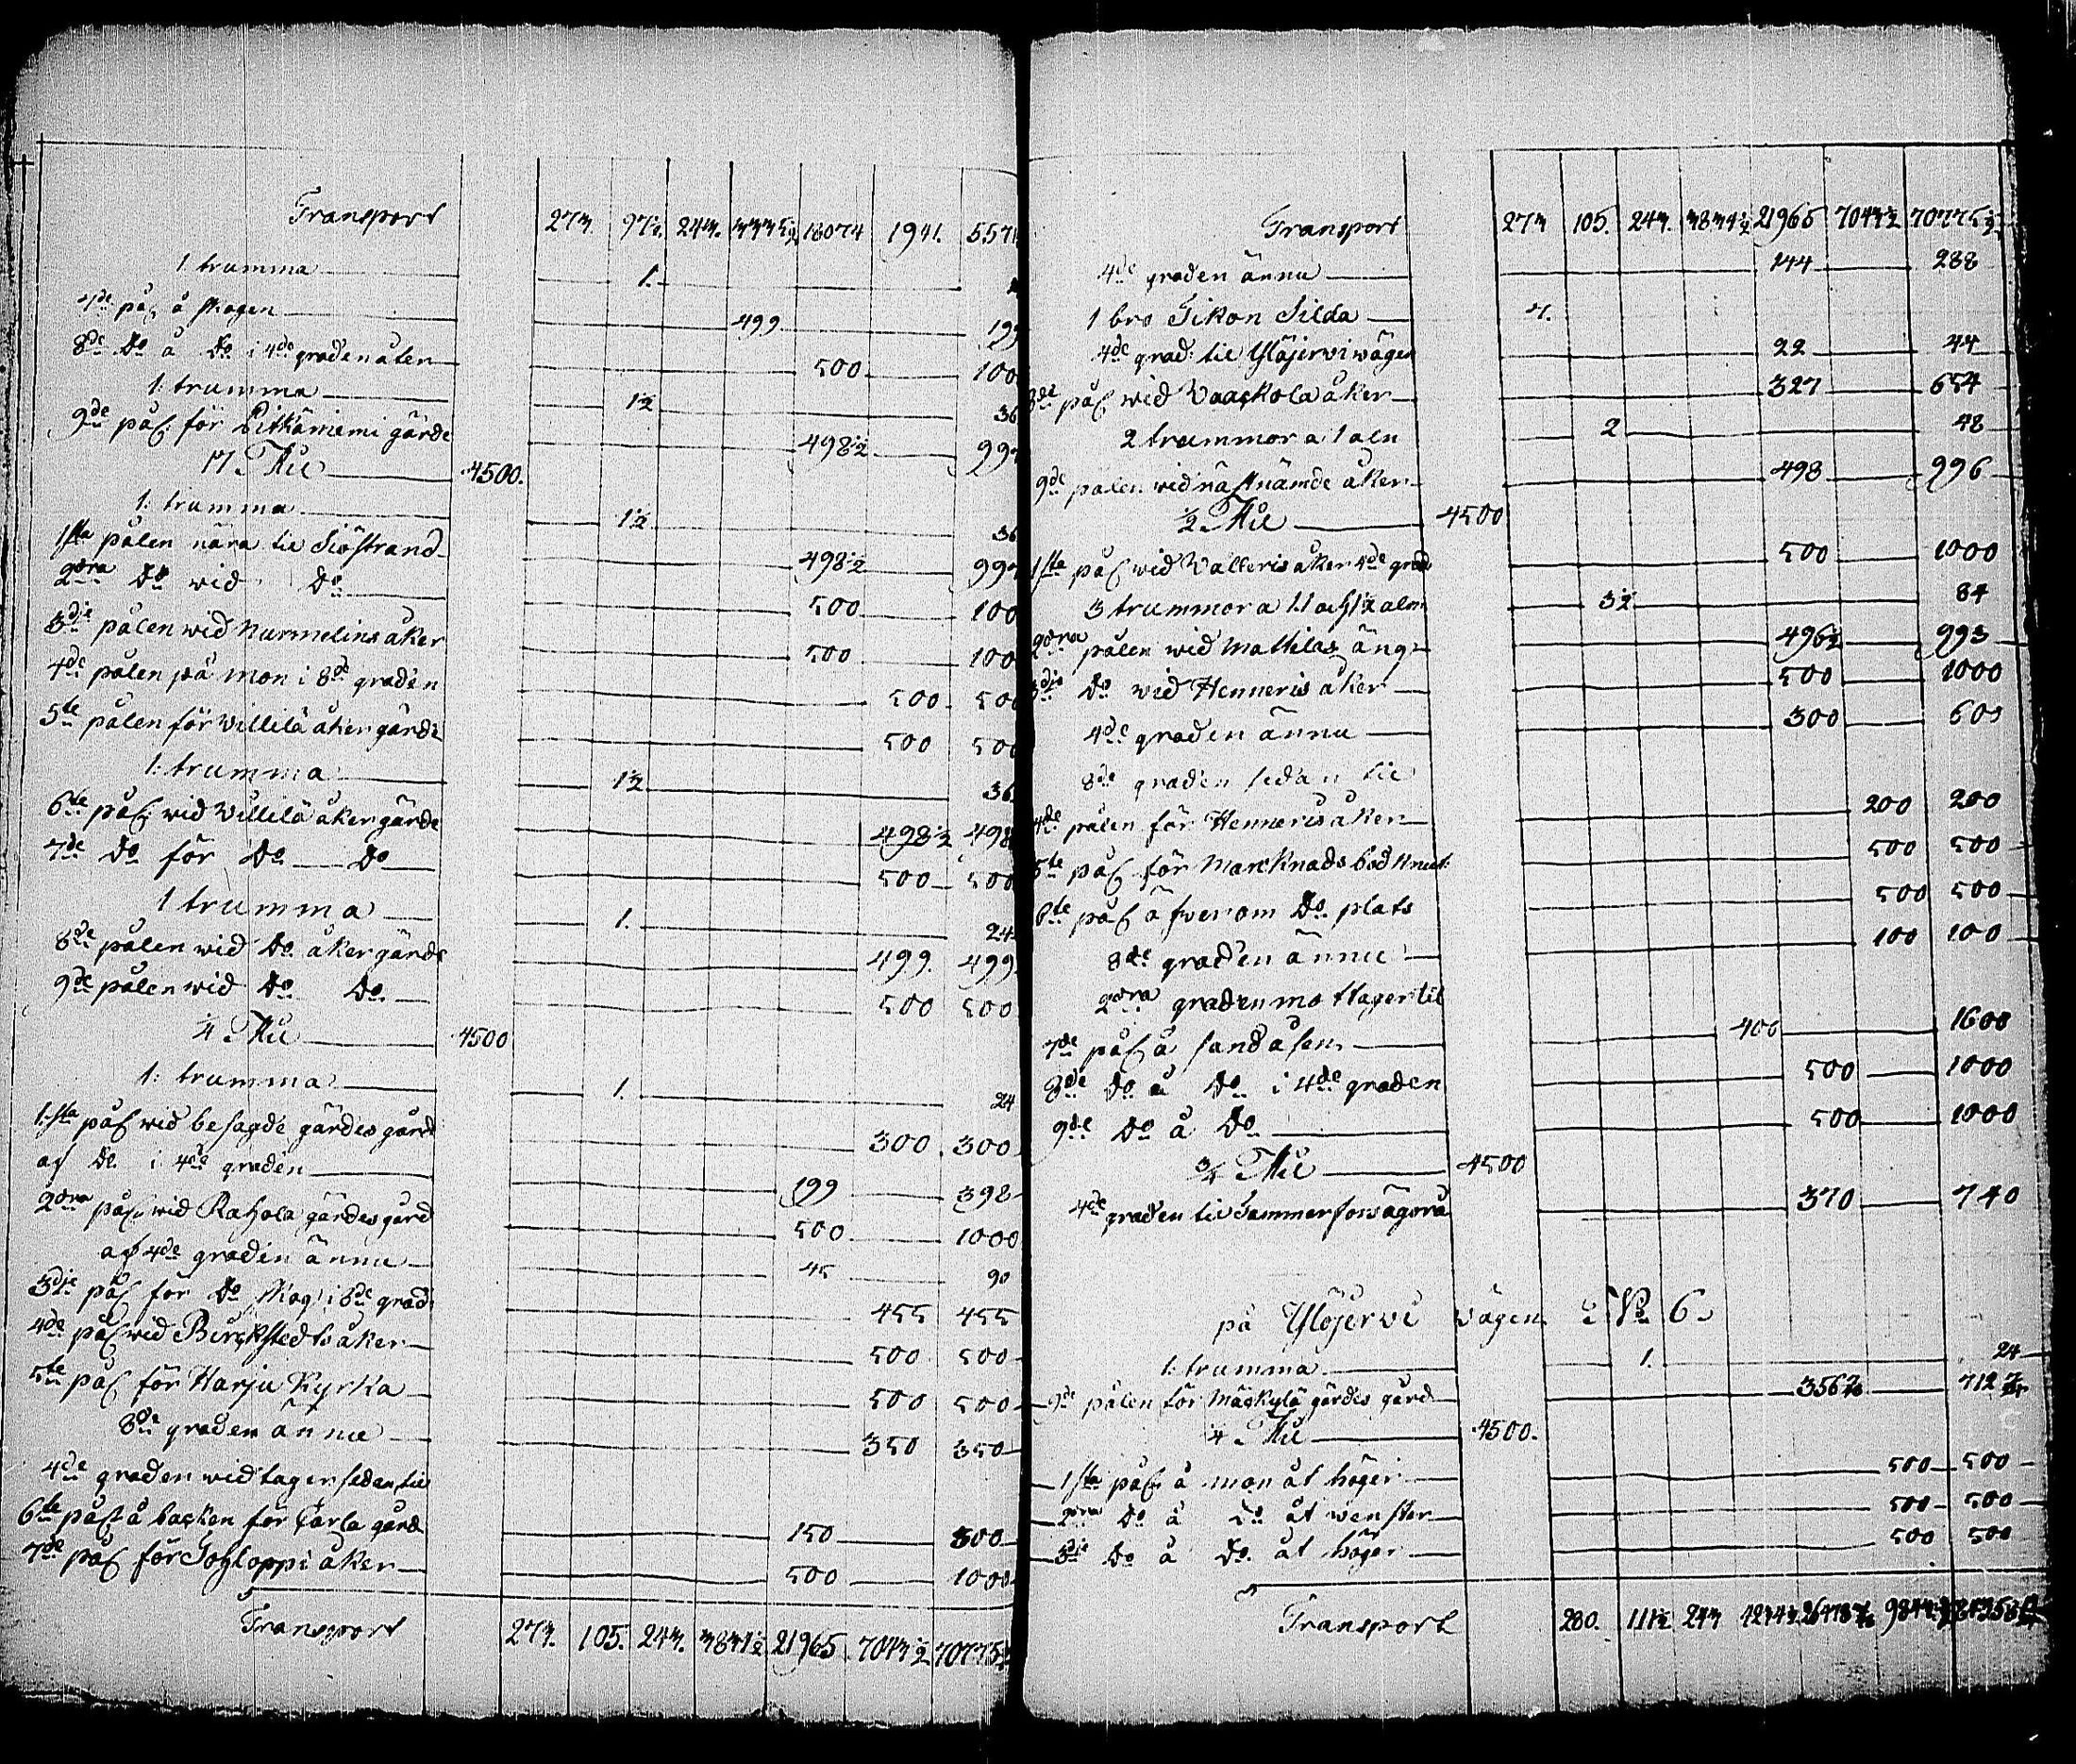 Transport 273. 97½. 243. 3335½ 18074 1941. 557
1. trumma 1.
7de pål å skogen 499 199
8de Do å Do i 4de graden åter 500 100
1. trumma 1½ 36
9de pål för Pitkäniemi gärde 498½ 997
4500.
1: trumma 1½ 36
1sta pålen nära til Siöstrand 498½ 997
2dra Do wid Do 500 100
3die pålen wid Nurmelins åker 500 100
4de pålen på mon i 8de graden 500 500
5te pålen för Villilä åkergärde 500 500
1: trumma 1½ 36
6te pål wid Villilä åkergärde 498½ 498
7de Do för Do Do 500 500
1 trumma 1. 24
8de pålen wid Do åkergärde 499. 499
9de pålen wid Do Do 500 500
¼ Mil 4500
1: trumma 1. 24
1:sta pål wid besagde gärdesgård 300 300
af Do i 4de graden 199 398
2dra pål wid Rahola gärdesgård 500 1000
af 4de graden ännu 45 90
3die pål för Do skog i 8de grad 455 455
4de pål wid Birckstedts åker 500 500
5te pål för Harju Kyrka 500 500
8de graden ännu 350 350
4de graden widtager sedan til
6te pål å backen för Särla gård 150 300
7de pål för Hyhloppi åker 500 1000
Transport 273. 105. 243. 3834½ 21965 7043½ 70775½
Transport 273 105. 243. 3834½ 21965 7043½ 70775½
4de graden ännu 144 288
1 bro Tikon Silda 7.
4de grad: til Ylöjervi wägen 22 44
8de pål wid Vaackola åker 327 654
2 trummor a 1 aln 2 48
9de pålen wid näst nämde åker 498 996
½ Mil 4500
1ste pål wid Valleris åker 4de grad 500 1000
3 trummor a 1.1 och 1½ aln 3½ 84
2dra pålen wid Mattilas äng 496½ 993
3die Do wid Henneris åker 500 1000
4de graden ännu 300 600
8de graden sedan til
4de pålen för Henneris åker 200 200
5te pål för Marcknads bod Knut 500 500
6te pål äfwer om Do plats 500 500
8de graden ännu 100 100
2dra graden mottager til
7de pål å sandåsen 400 1600
8de Do å Do i 4de graden 500 1000
9de Do å Do 500 1000
¾ Mil 4500
4de graden til Tammerfors ägora 370 740
på Ylöjervi Vägen No 6.
1: trumma 1. 24
9de pålen för Mäckylä gärdes gård
¼ Mil 4500.
1sta pål å mon åt höger 500 500
2dra Do å Do åt wenster 500 500
3die Do å Do. åt höger 500 500
Transport 280. 111½ 243